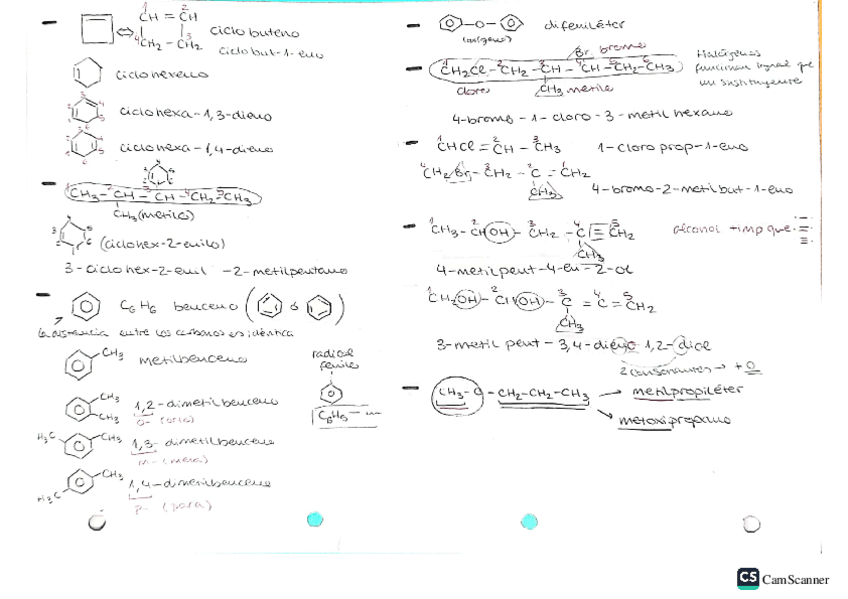 CH = CH
CH2 - CH2
ciclobuteno
ciclobut-1-eno
ciclohexeno
ciclohexa-1,3-dieno
ciclohexa-1,4-dieno
CH3 - CH - CH - CH2 - CH3
CH3 (metilo)
(ciclohex-2-enilo)
3-ciclohex-2-enil -2-metilpentano
C6H6 benceno ( ó )
la distancia entre los carbonos es idéntica
CH3 metilbenceno
radical
fenilo
CH3
CH3
1,2-dimetilbenceno
o- (orto)
C6H5 -
H3C CH3 1,3-dimetilbenceno
m- (meta)
CH3
H3C
1,4-dimetilbenceno
p- (para)
- O - difeniléter
(oxígeno)
Br bromo
CH2Cl - CH2 - CH - CH - CH2 - CH3
cloro
CH3 metilo
Halógenos
funcionan igual que
un sustituyente
4-bromo-1-cloro-3-metilhexano
CHCl = CH - CH3 1-cloroprop-1-eno
CH2Br - CH2 - C = CH2
CH3
4-bromo-2-metilbut-1-eno
CH3 - CHOH - CH2 - C = CH2
CH3
alcohol +imp que
4-metilpent-4-en-2-ol
CHOH - C(OH) - C = C = CH2
CH3
3-metilpent-3,4-dieno 1,2-diol
2 consonantes → + o
CH3 - O - CH2 - CH2 - CH3 → metilpropiléter
→ metoxipropano
CS CamScanner